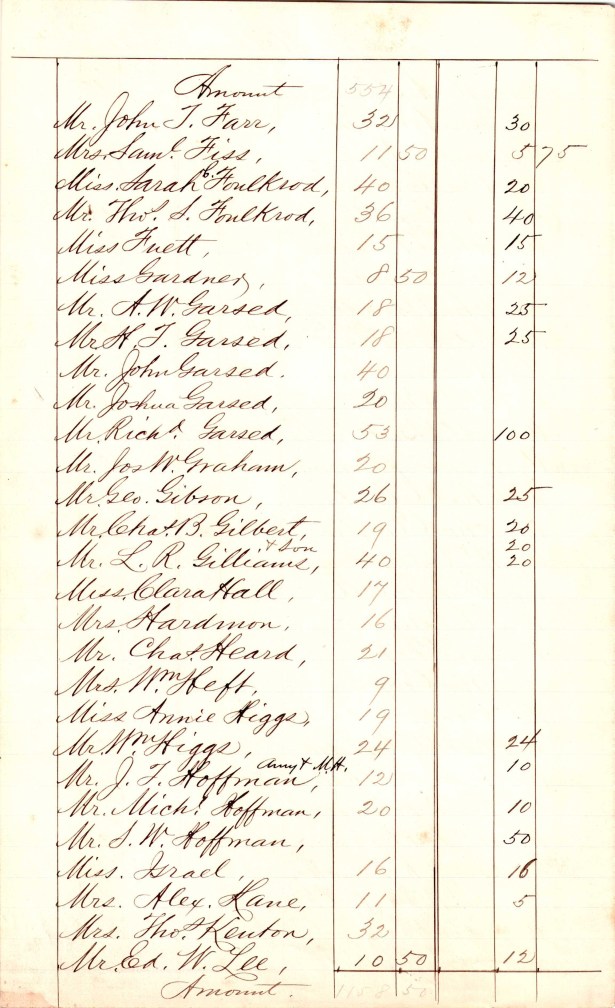 Amount 554
Mr. John T. Farr, 32 30
Mrs. Saml. Fiss, 11 50 5 75
Miss. Sarah C. Foulkrod, 40 20
Mr. Thos. S. Foulkrod, 36 40
Miss Fuett, 15 15
Miss Gardner, 8 50 12
Mr. A. W. Garsed, 18 25
Mr H. T. Garsed, 18 25
Mr. John Garsed. 40
Mr. Joshua Garsed, 20
Mr. Richd. Garsed, 53 100
Mr. Jos W. Graham, 20
Mr. Geo. Gibson, 26 25
Mr. Chas. B. Gilbert, 19 20
+ Son 20
Mr. L. R. Gilliams, 40 20
Miss. Clara Hall, 17
Mrs. Hardmon, 16
Mr. Chas. Heard, 21
Mrs. Wm Heft, 9
Miss Annie Higgs, 19
Mr. Wm Higgs, 24 24
Amy + M.H.
Mr. J. T. Hoffman, 12 10
Mr. Michl. Hoffman, 20 10
Mr. S. W. Hoffman, 50
Miss. Israel, 16 16
Mrs. Alex. Kane, 11 5
Mrs. Thos. Kenton, 32
Mr. Ed. W. Lee, 10 50 12
Amount. 1158 50